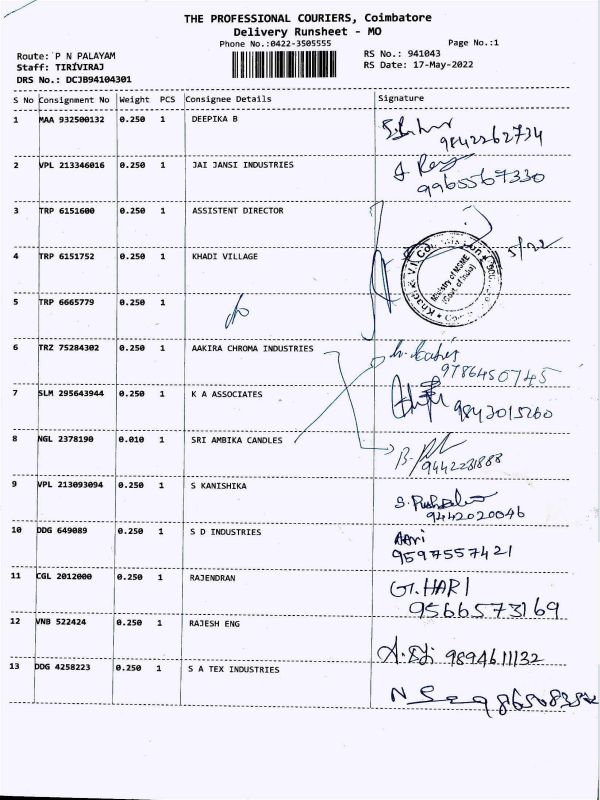 THE PROFESSIONAL COURIERS, Coimbatore
Delivery Runsheet - MO
Phone No.:0422-3505555
Page No.:1
Route: P N PALAYAM
RS No.: 941043
Staff: TIRIVIRAJ
RS Date: 17-May-2022
DRS No.: DCJB94104301
S No Consignment No Weight PCS Consignee Details Signature
1 MAA 932500132 0.250 1 DEEPIKA B
9842262734
2 VPL 213346016 0.250 1 JAI JANSI INDUSTRIES
9965567330
3 TRP 6151600 0.250 1 ASSISTENT DIRECTOR
4 TRP 6151752 0.250 1 KHADI VILLAGE
5/22
Ministry of MSME
(Govt. of India)
5 TRP 6665779 0.250 1
6 TRZ 75284302 0.250 1 AAKIRA CHROMA INDUSTRIES
9786450745
7 SLM 295643944 0.250 1 K A ASSOCIATES
9843015260
8 NGL 2378190 0.010 1 SRI AMBIKA CANDLES
9442231888
9 VPL 213093094 0.250 1 S KANISHIKA
9442020046
10 DDG 649089 0.250 1 S D INDUSTRIES
9597557421
11 CGL 2012000 0.250 1 RAJENDRAN
G.HARI
9566573169
12 VNB 522424 0.250 1 RAJESH ENG
9894611132
13 DDG 4258223 0.250 1 S A TEX INDUSTRIES